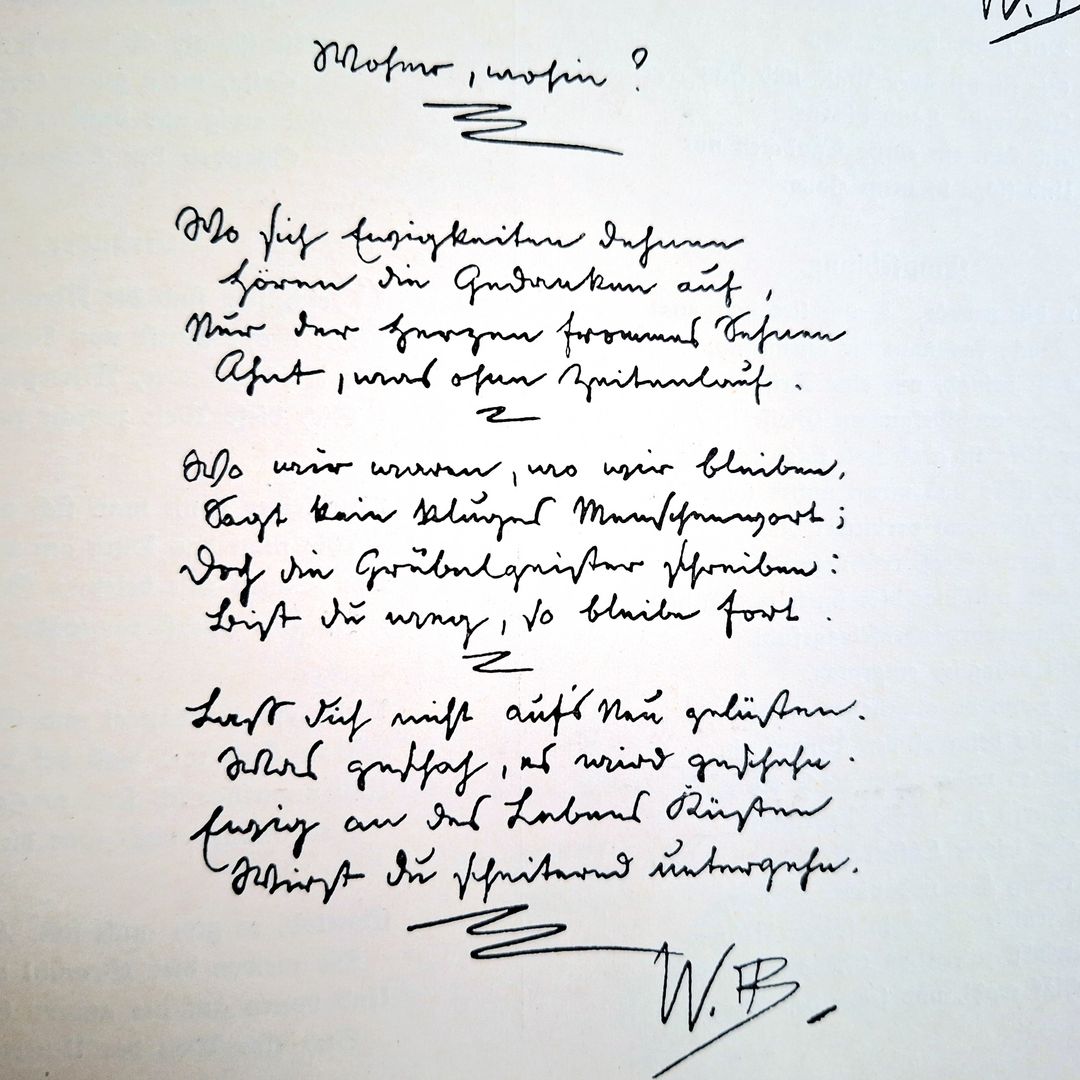 W. B
Woher, wohin?
Wo sich Ewigkeiten dehnen
Hören die Gedanken auf,
Nur der Herzen frommes Sehnen
Ahnt, was ohne Zeitenlauf.
Wo wir waren, wo wir bleiben,
Sagt kein kluges Menschenwort;
Doch die Grübelgeister schreiben:
Bist du weg, so bleibe fort.
Lass dich nicht auf's Neu gelüsten.
Was geschah, es wird geschehn.
Ewig an des Lebens Küsten
Wirst du scheiternd untergehn.
W. B.